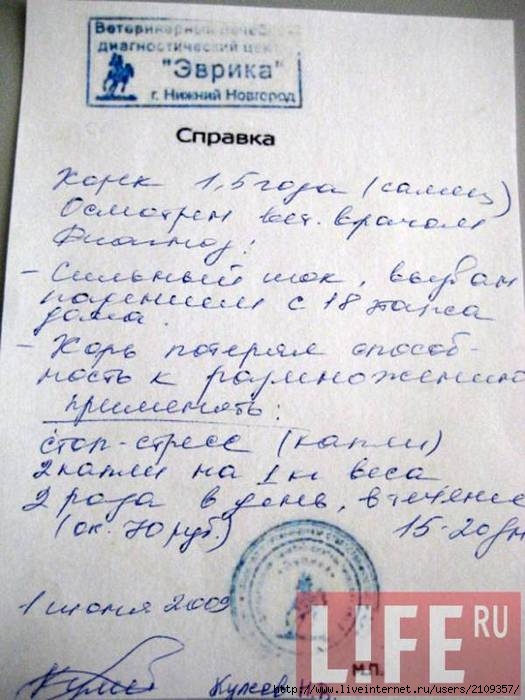 Ветеринарный лечебно-
диагностический центр
"Эврика"
г. Нижний Новгород
Справка
Хорёк 1,5 года (самец)
Осмотрен вет. врачом
Диагноз:
- Сильный шок, вызван
падением с 18 этажа
дома.
- Хорь потерял способ-
ность к размножению
применять:
стоп-стресс (капли)
2 капли на 1 кг веса
2 раза в день, в течение
(ок. 70 руб.) 15-20 дн
1 июня 2009
М.П.
LIFE.RU
http://www.liveinternet.ru/users/2109357/